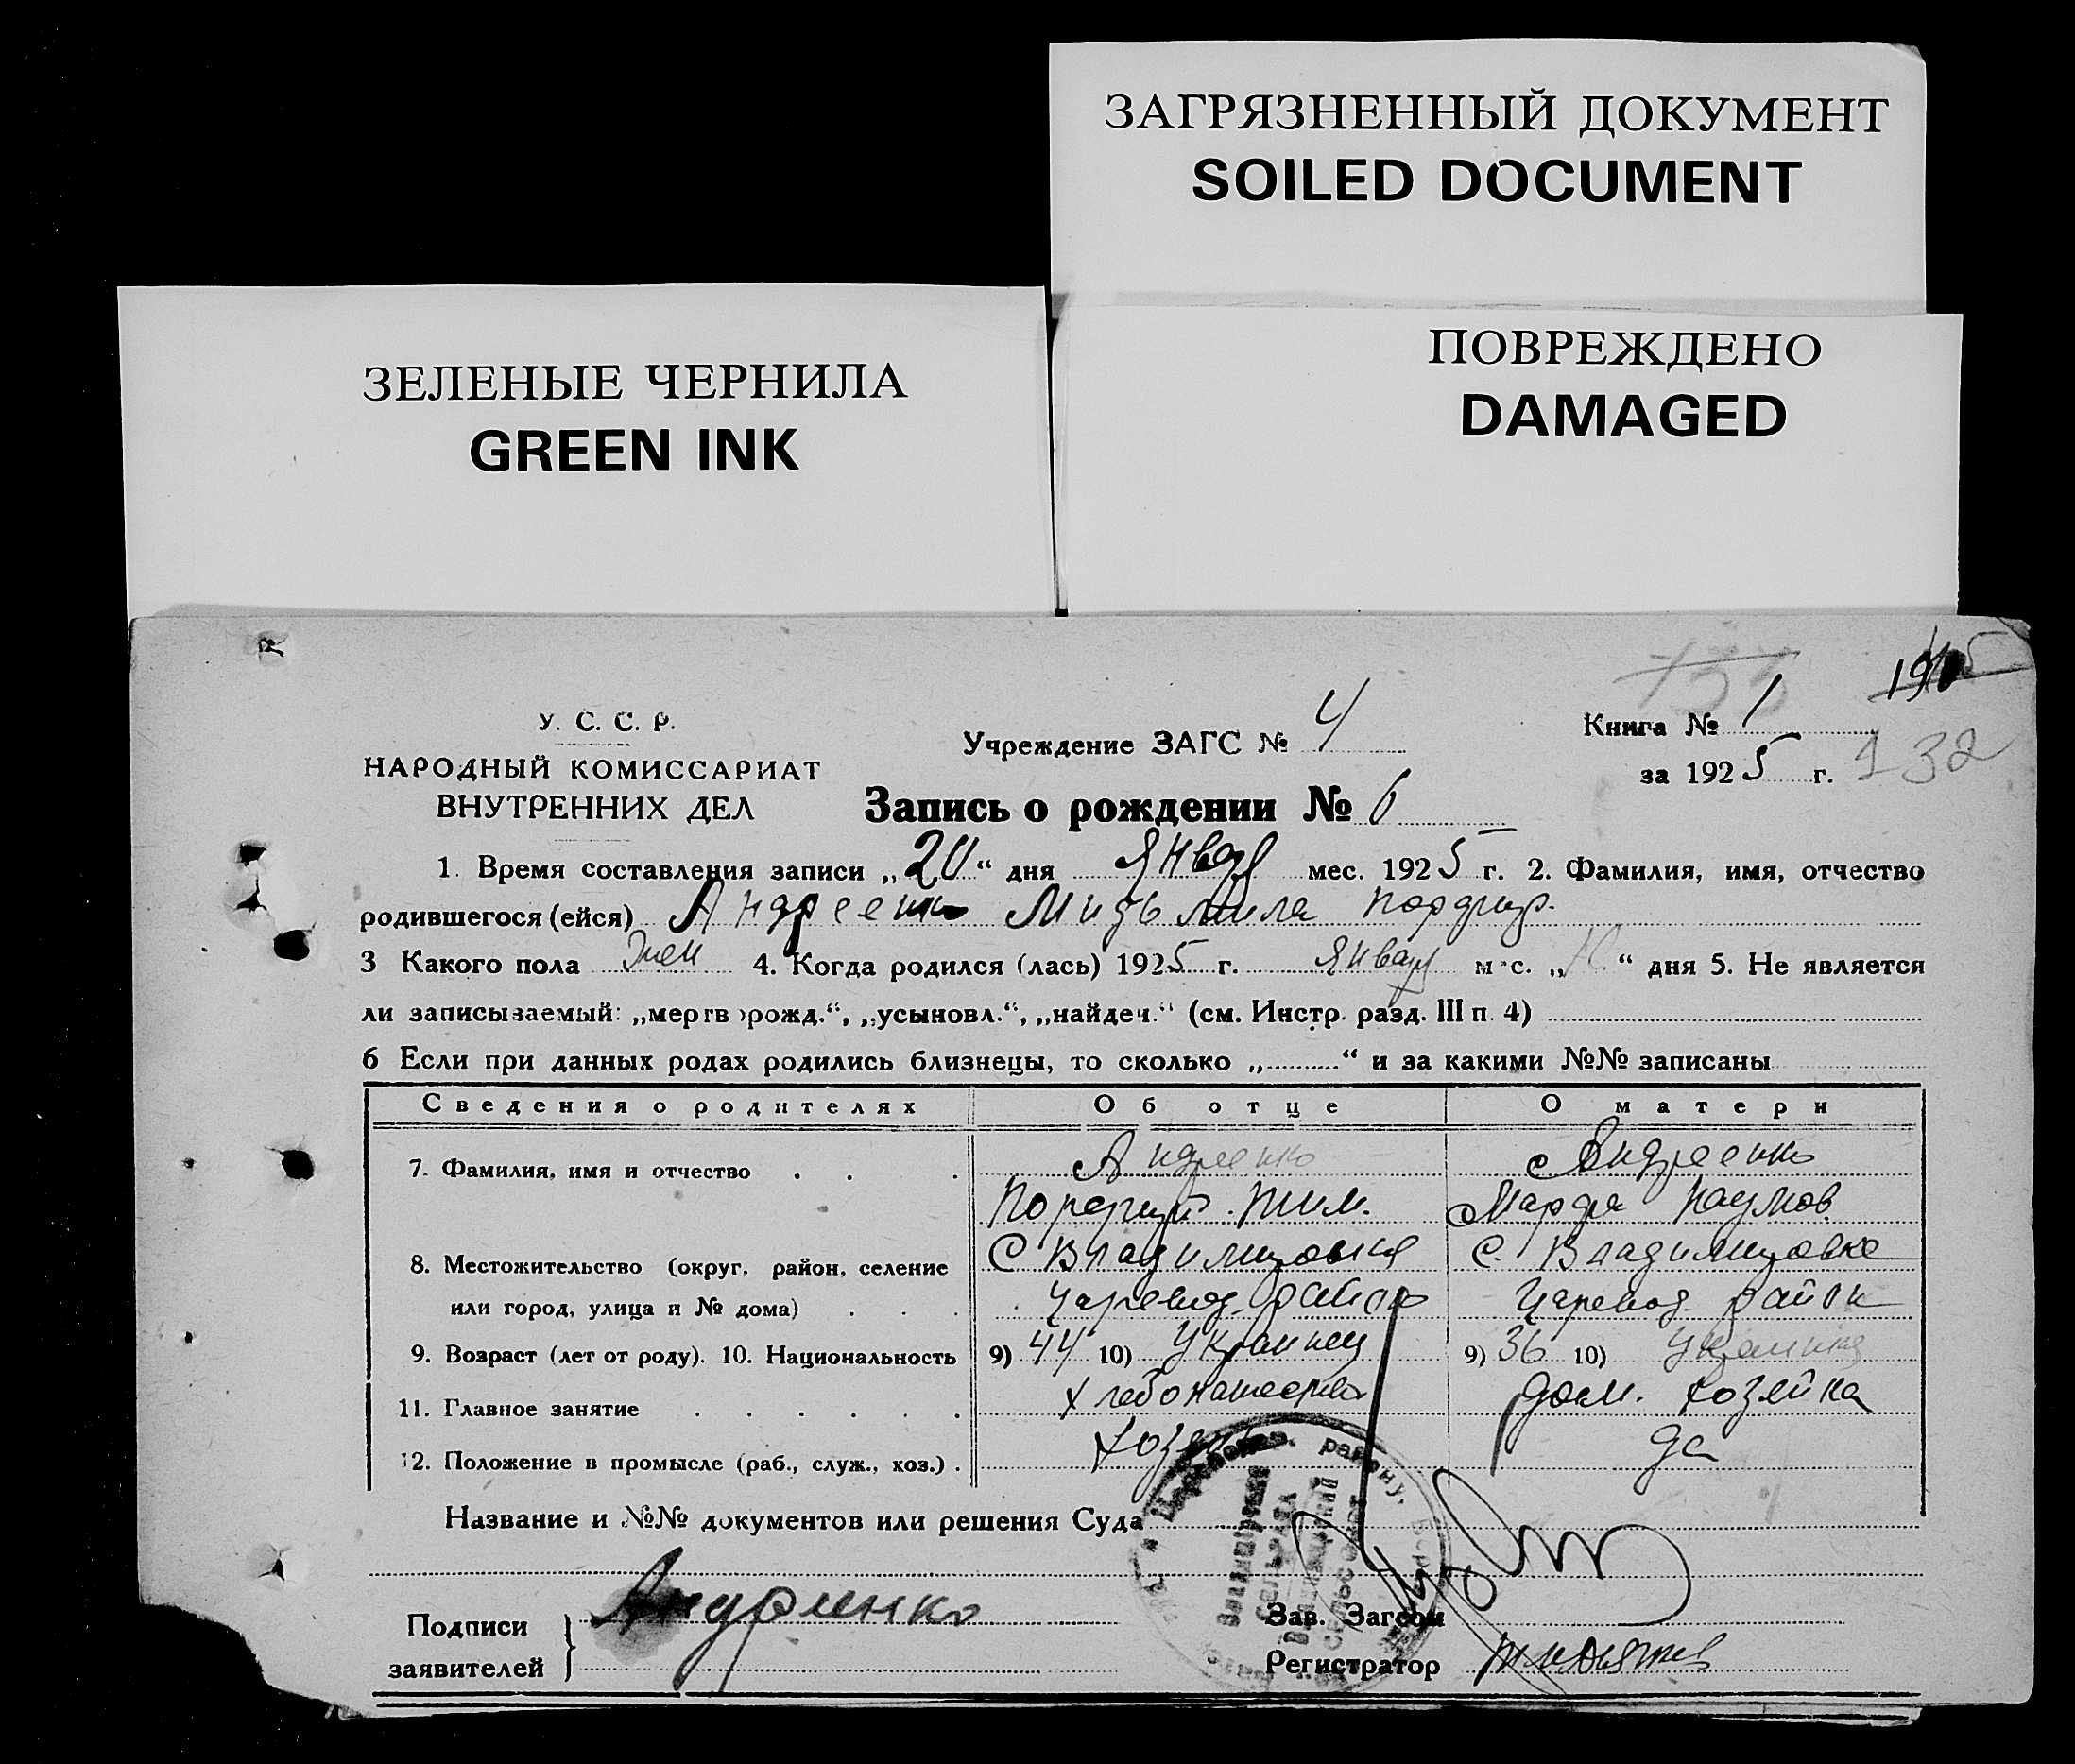 ЗАГРЯЗНЕННЫЙ ДОКУМЕНТ
SOILED DOCUMENT
ПОВРЕЖДЕНО
DAMAGED
ЗЕЛЕНЫЕ ЧЕРНИЛА
GREEN INK
У. С. С. Р.
НАРОДНЫЙ КОМИССАРИАТ
ВНУТРЕННИХ ДЕЛ
Учреждение ЗАГС № 4
Книга № 1
за 1925 г. 132
Запись о рождении № 6
1. Время составления записи „20“ дня Января мес. 1925 г. 2. Фамилия, имя, отчество
родившегося (ейся) Андреенко
3 Какого пола жен 4. Когда родился (лась) 1925 г. Января мес. „ “ дня 5. Не является
ли записываемый: „мертворожд.“, „усыновл.“, „найдеч.“ (см. Инстр. разд. III п. 4)
6 Если при данных родах родились близнецы, то сколько „ “ и за какими №№ записаны
Сведения о родителях Об отце О матери
7. Фамилия, имя и отчество Андреенко Андреенко
Порфир. Тим. Марфа Наумов.
8. Местожительство (округ, район, селение С Владимировка С. Владимировка
или город, улица и № дома) Царевод. район Царевод. район
9. Возраст (лет от роду). 10. Национальность 9) 44 10) Украинец 9) 36 10) Украинка
11. Главное занятие Хлебопашество Дом. хозяйка
12. Положение в промысле (раб., служ., хоз.) Хозяин да
Название и №№ документов или решения Суда
Подписи Андреенко Зав. Загсом
заявителей Регистратор